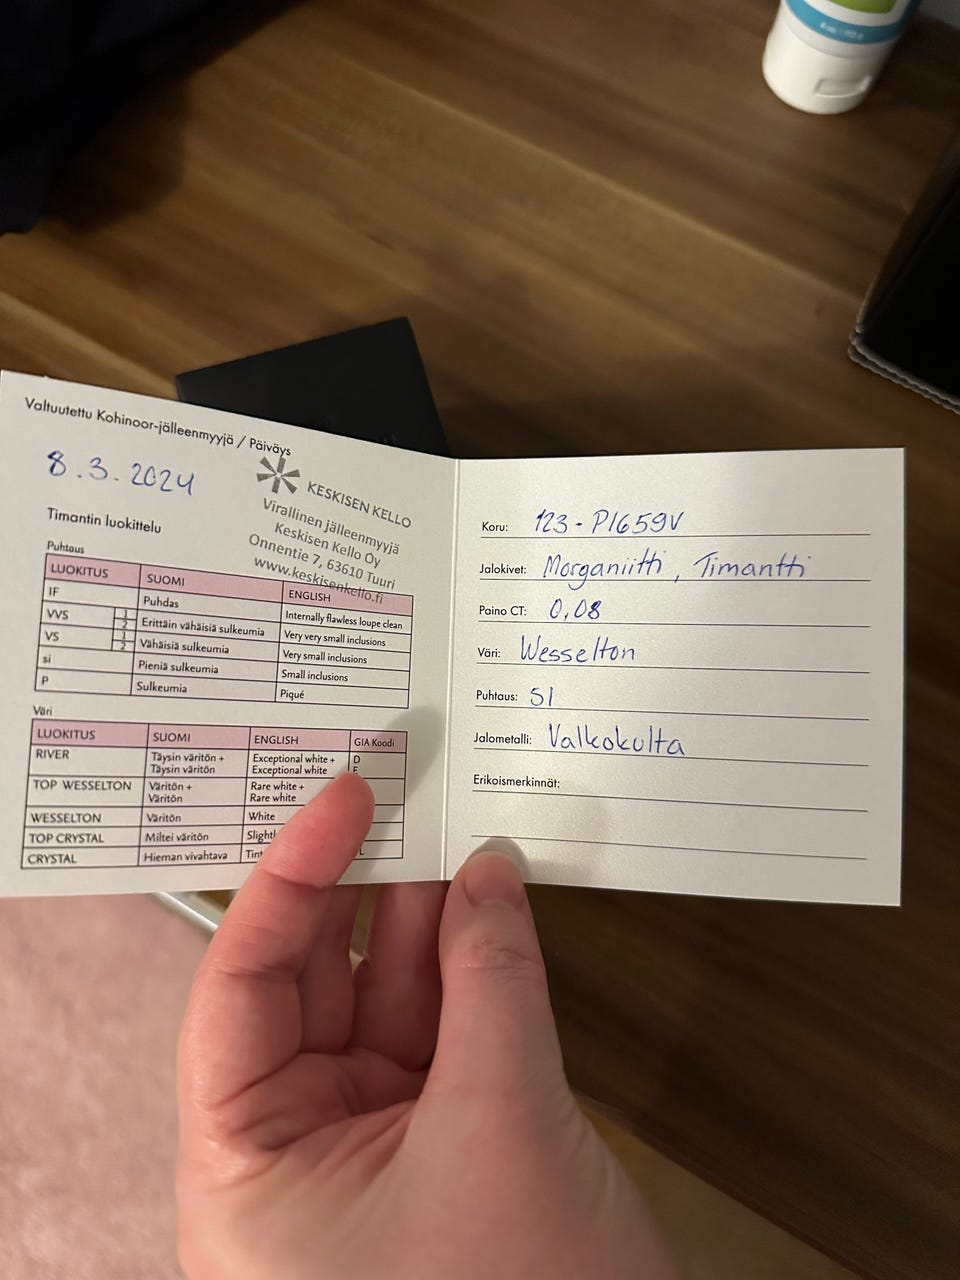 Valtuutettu Kohinoor-jälleenmyyjä / Päiväys
8.3.2024
KESKISEN KELLO
Virallinen jälleenmyyjä
Keskisen Kello Oy
Onnentie 7, 63610 Tuuri
www.keskisenkello.fi
Timantin luokittelu
Puhtaus
LUOKITUS SUOMI ENGLISH
IF Puhdas Internally flawless loupe clean
VVS 1 2 Erittäin vähäisiä sulkeumia Very very small inclusions
VS 1 2 Vähäisiä sulkeumia Very small inclusions
si Pieniä sulkeumia Small inclusions
P Sulkeumia Piqué
Väri
LUOKITUS SUOMI ENGLISH GIA Koodi
RIVER Täysin väritön + Exceptional white + D
Täysin väritön Exceptional white E
TOP WESSELTON Väritön + Rare white +
Väritön Rare white
WESSELTON Väritön White
TOP CRYSTAL Miltei väritön
CRYSTAL Hieman vivahtava L
Koru: 123-P1659V
Jalokivet: Morganiitti, Timantti
Paino CT: 0,08
Väri: Wesselton
Puhtaus: SI
Jalometalli: Valkokulta
Erikoismerkinnät: